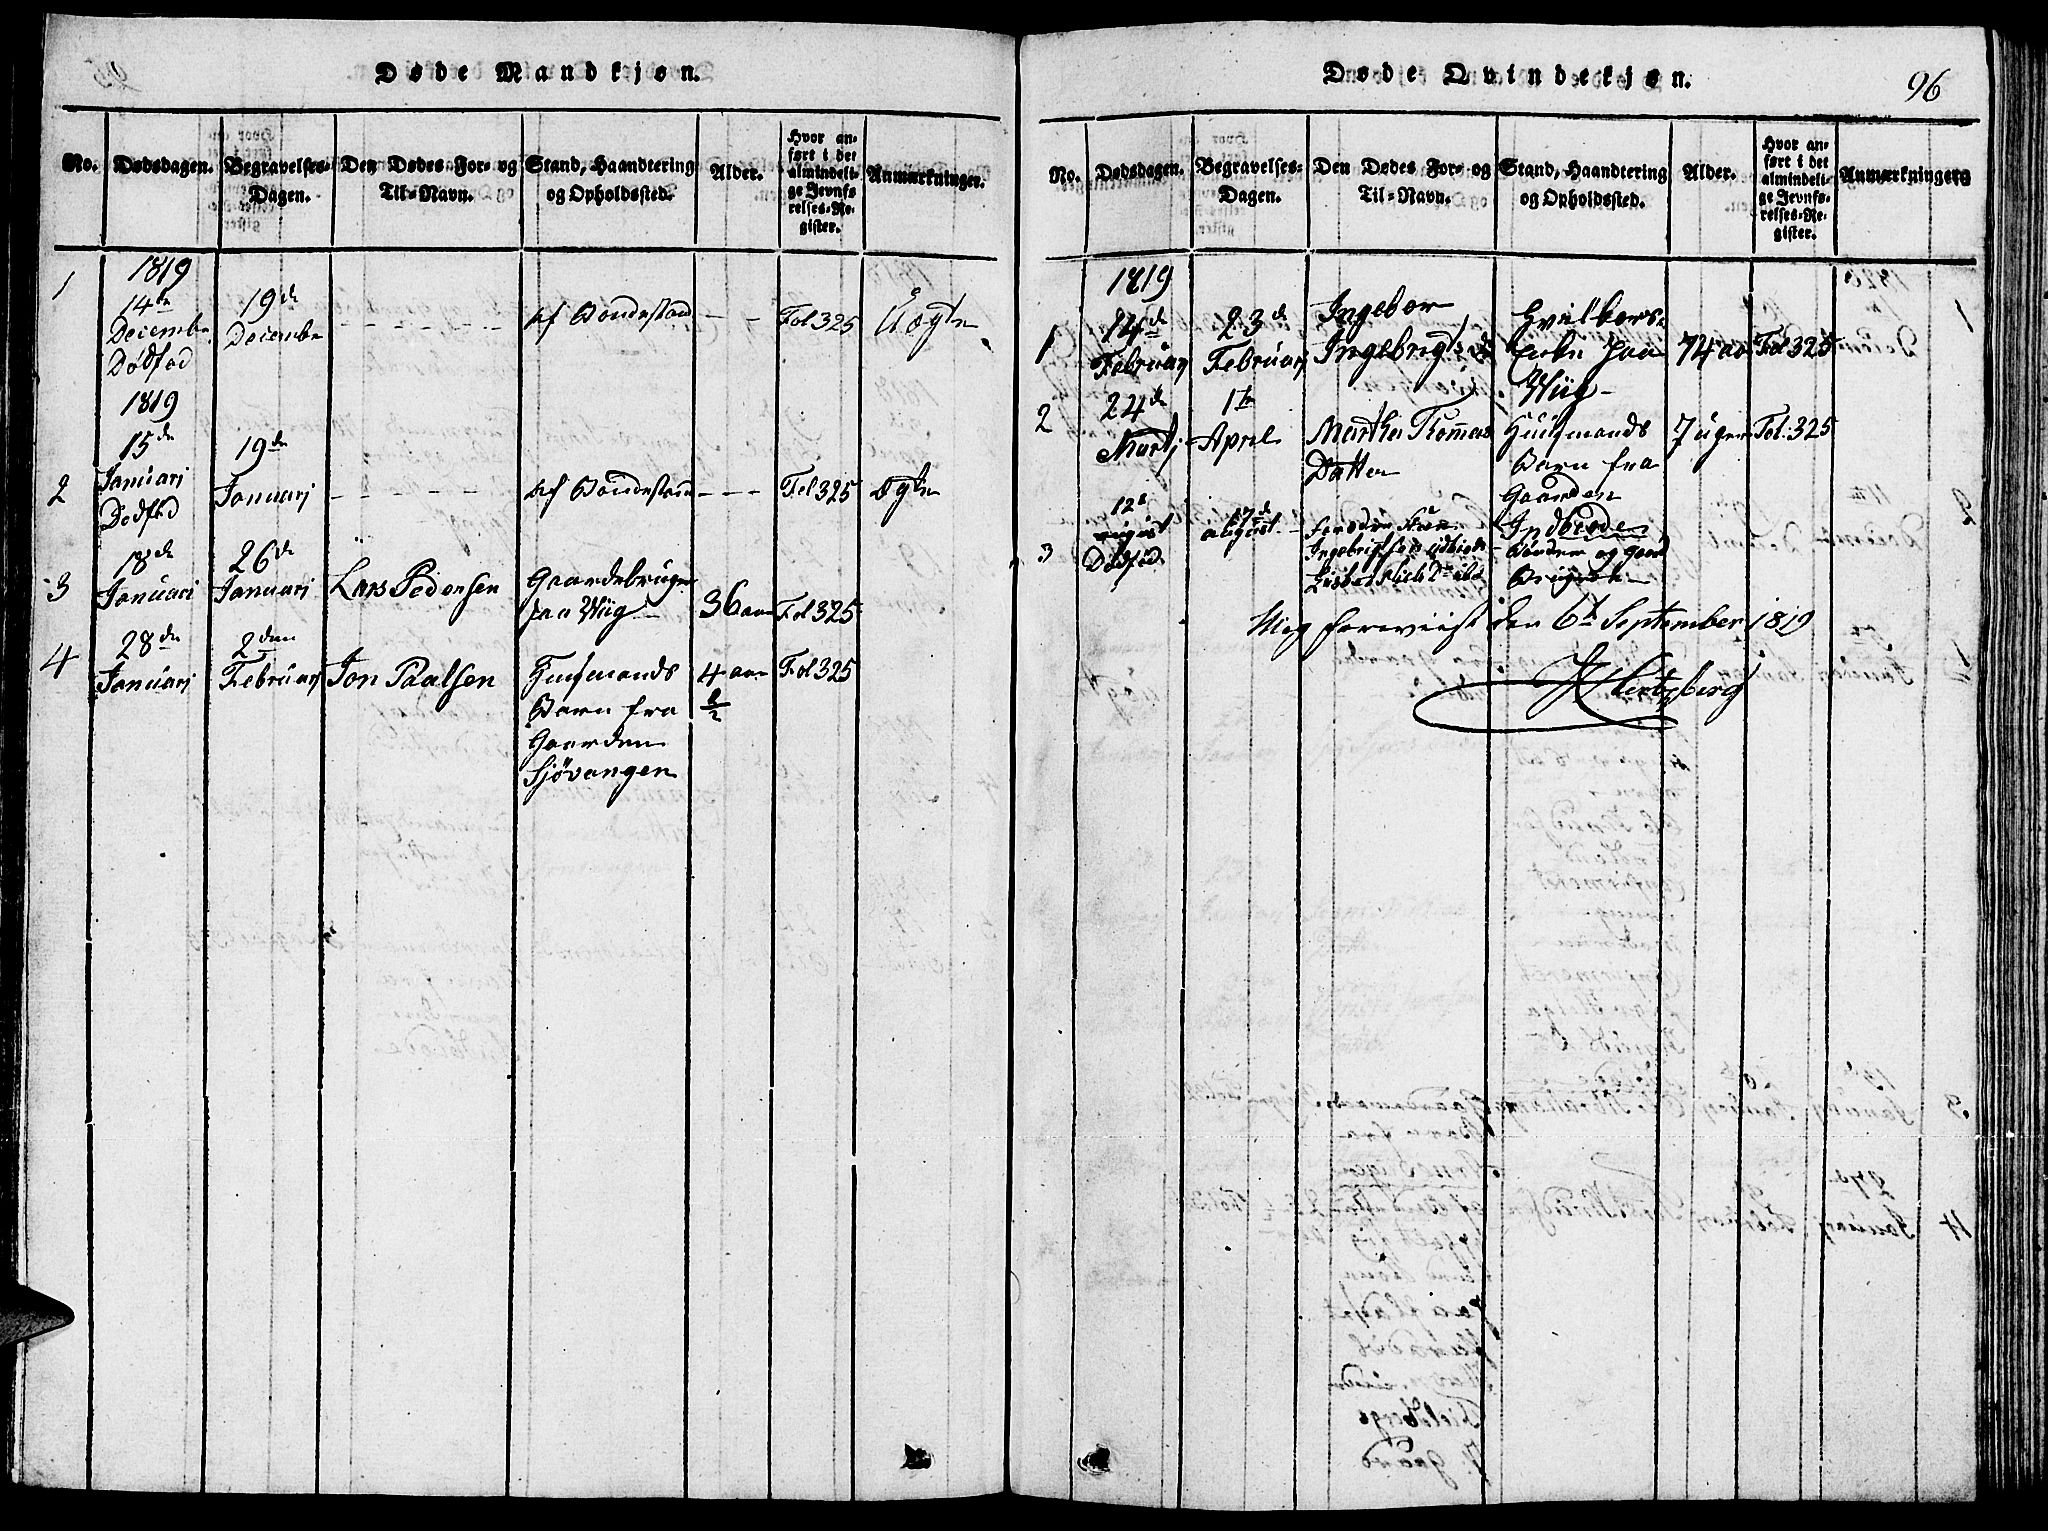 Døde Mandkjøn.
No.
Dødsdagen.
Begravelses-
Dagen.
Den Dødes For- og
Til-Navn.
Stand, Haandtering
og Opholdssted.
Alder.
Hvor an-
ført i det
almindeli-
ge Jevnfø-
relses-Re-
gister.
Anmærkninger.
1
1819
14de
Decembr
Dødfød
19de
Decembr
- - - - - -
af Bondestand
- -
Fol 325
Uægte
1819
2
15de
Januari
Dødfød
19de
Januari
- - - - - -
af Bondestand
- - -
Fol 325
ægte
3
18de
Januari
26de
Januari
Lars Pedersen
Gaardebruger
paa Wiig
36 aar
Fol 325
4
28de
Januari
2den
Februari
Jon Paalsen
Huusmands
Barn fra
Gaarden
Sjøvangen
4 aar
½
Fol 325
Døde Qvindekjøn.
96
No.
Dødsdagen.
Begravelses-
Dagen.
Den Dødes For- og
Til-Navn.
Stand, Haandtering
og Opholdssted.
Alder.
Hvor an-
ført i det
almindeli-
ge Jevnfø-
relses-Re-
gister.
Anmærkninger
1
1819
14de
Februar
23de
Februari
Ingebor
Ingebrigts D
Enke paa
Wiig
74 aar
Fol 325
2
24de
Martj
1te
April
Martha Thommas
Datter
Huusmands
Barn fra
Gaarden
Indbiode
7 uger
Fol. 325
3
12te
august
Dødfød
17de
august
Ingebrigtsen
Bønder og Gaard
Brugere
Mig foreviist den 6te September 1819
Hertzberg